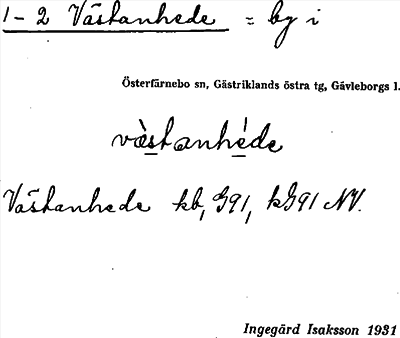 1-2 Västanhede = by i
Österfärnebo sn, Gästriklands östra tg, Gävleborgs l.
vàstanhéde
Västanhede kb, G91, kG91 NV.
Ingegärd Isaksson 1931